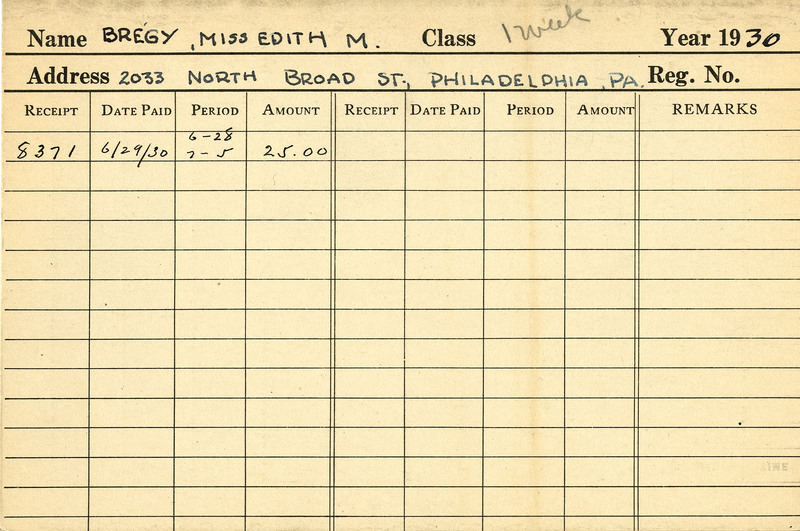 Name BREGY, MISS EDITH M. Class 1 week Year 1930
Address 2033 NORTH BROAD ST., PHILADELPHIA, PA. Reg. No.
RECEIPT DATE PAID PERIOD AMOUNT RECEIPT DATE PAID PERIOD AMOUNT REMARKS
6-28
8371 6/29/30 7-5 25.00